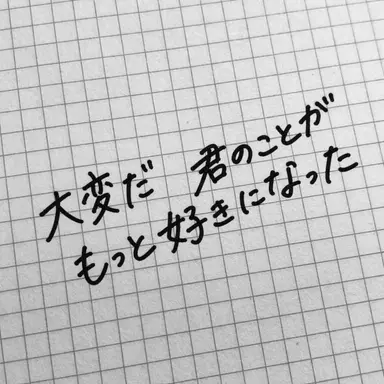 大変だ 君のことが
もっと好きになった